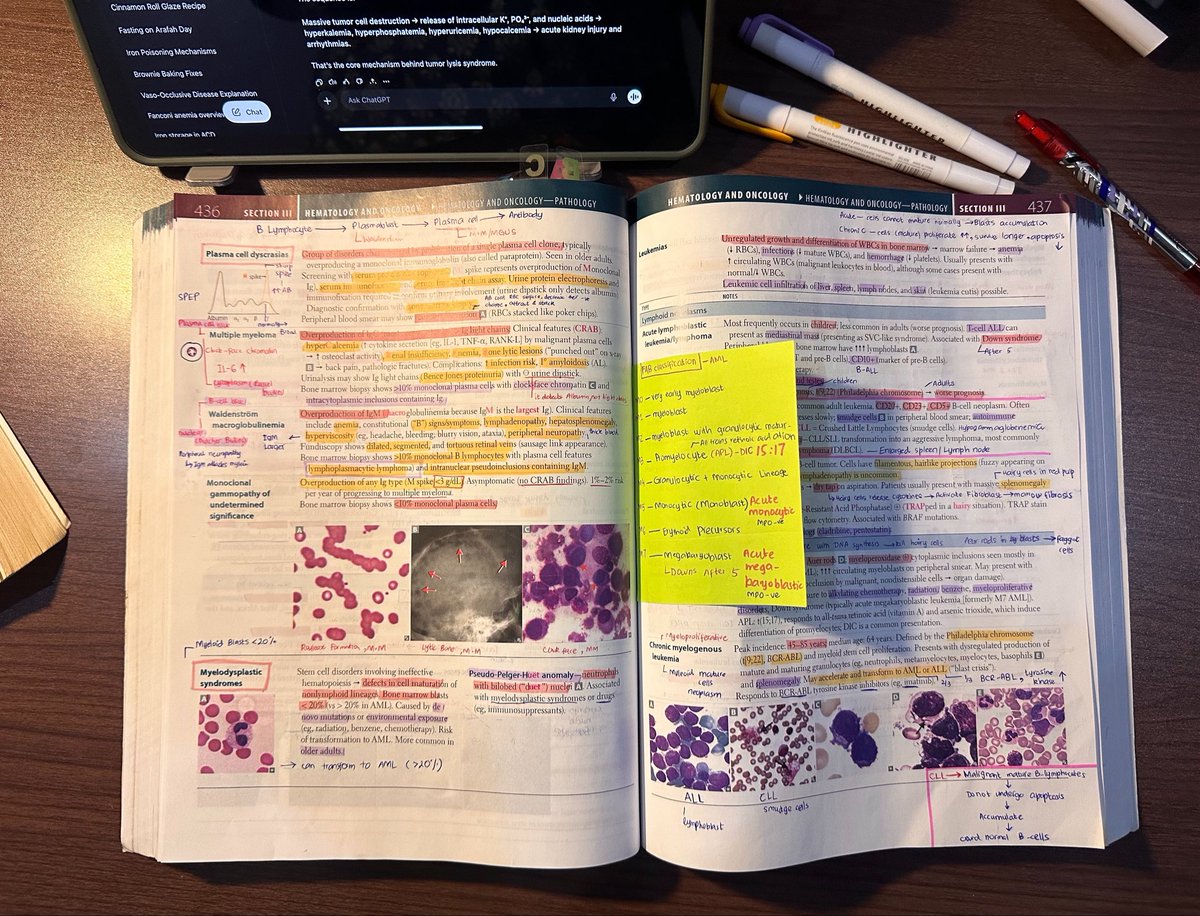 Cinnamon Roll Glaze Recipe
Fasting on Arafah Day
Iron Poisoning Mechanisms
Brownie Baking Fixes
Vaso-Occlusive Disease Explanation
Fanconi anemia overview
Iron storage in ACD
Chat
Massive tumor cell destruction → release of intracellular K⁺, PO₄³⁻, and nucleic acids →
hyperkalemia, hyperphosphatemia, hyperuricemia, hypocalcemia → acute kidney injury and
arrhythmias.
That's the core mechanism behind tumor lysis syndrome.
Ask ChatGPT
HIGHLIGHTER
HIGHLIGHTER
436 SECTION III HEMATOLOGY AND ONCOLOGY HEMATOLOGY AND ONCOLOGY—PATHOLOGY
B Lymphocyte → Plasmablast → Plasma cell → Antibody
MM/MGUS
Plasma cell dyscrasias
Group of disorders characterized by proliferation of a single plasma cell clone, typically
overproducing a monoclonal immunoglobulin (also called paraprotein). Seen in older adults
Screening with serum protein electrophoresis
spike represents overproduction of Monoclonal
Ig), serum
chain assay. Urine protein electrophoresis and
immunofixation required to confirm urinary involvement (urine dipstick only detects albumin)
Diagnostic confirmation with
Peripheral blood smear may show
A (RBCs stacked like poker chips).
SPEP
M spike
↑↑ AB
Albumin α₁ α₂ β γ
normally
Multiple myeloma
Overproduction of
light chains) Clinical features (CRAB):
hyperCalcemia ↑ cytokine secretion (eg, IL-1, TNF-α, RANK-L) by malignant plasma cells
→ ↑ osteoclast activity), Renal insufficiency, Anemia, Bone lytic lesions ("punched out" on x-ray
B → back pain, pathologic fractures). Complications: ↑ infection risk, 1° amyloidosis (AL).
Urinalysis may show Ig light chains (Bence Jones proteinuria) with ⊖ urine dipstick.
Bone marrow biopsy shows >10% monoclonal plasma cells with clock-face chromatin C and
intracytoplasmic inclusions containing Ig.
Clock-face chromatin
IL-6 ↑
Waldenström
macroglobulinemia
Overproduction of IgM (macroglobulinemia because IgM is the largest Ig). Clinical features
include anemia, constitutional ("B") signs/symptoms, lymphadenopathy, hepatosplenomegaly,
hyperviscosity (eg, headache, bleeding, blurry vision, ataxia), peripheral neuropathy
Funduscopy shows dilated, segmented, and tortuous retinal veins (sausage link appearance).
Bone marrow biopsy shows >10% monoclonal B lymphocytes with plasma cell features
(lymphoplasmacytic lymphoma) and intranuclear pseudoinclusions containing IgM.
IgM
Larger
Peripheral neuropathy
Monoclonal
gammopathy of
undetermined
significance
Overproduction of any Ig type (M spike <3 g/dL). Asymptomatic (no CRAB findings). 1%–2% risk
per year of progressing to multiple myeloma.
Bone marrow biopsy shows <10% monoclonal plasma cells
A
B
C
Rouleaux Formation, M.M
Lytic Bone, M.M
Clock face, MM
Myeloid Blasts <20%
Myelodysplastic
syndromes
Stem cell disorders involving ineffective
hematopoiesis → defects in cell maturation of
nonlymphoid lineages. Bone marrow blasts
< 20% (vs > 20% in AML). Caused by de
novo mutations or environmental exposure
(eg, radiation, benzene, chemotherapy). Risk
of transformation to AML. More common in
older adults.
→ can transform to AML (>20%)
Pseudo-Pelger-Huet anomaly—neutrophils
with bilobed ("duet") nuclei A. Associated
with myelodysplastic syndromes or drugs
(eg, immunosuppressants).
A
HEMATOLOGY AND ONCOLOGY HEMATOLOGY AND ONCOLOGY—PATHOLOGY SECTION III 437
Acute - cells cannot mature normally → Blasts accumulation
Chronic - cells (mature) proliferate ↑↑, survive longer → apoptosis ↓
Leukemias
Unregulated growth and differentiation of WBCs in bone marrow → marrow failure → anemia
(↓ RBCs), infections (↓ mature WBCs), and hemorrhage (↓ platelets). Usually presents with
↑ circulating WBCs (malignant leukocytes in blood), although some cases present with
normal/↓ WBCs.
Leukemic cell infiltration of liver, spleen, lymph nodes, and skin (leukemia cutis) possible.
TYPE
NOTES
Lymphoid neoplasms
Acute lymphoblastic
leukemia/lymphoma
Most frequently occurs in children; less common in adults (worse prognosis). T-cell ALL can
present as mediastinal mass (presenting as SVC-like syndrome). Associated with Down syndrome
bone marrow have ↑↑↑ lymphoblasts A
↳ After 5
and pre-B cells), CD10+ (marker of pre-B cells).
B-ALL
children
Adults
t(9;22) (Philadelphia chromosome) → worse prognosis.
common adult leukemia. CD20+, CD23+, CD5+ B-cell neoplasm. Often
smudge cells B in peripheral blood smear; autoimmune
CLL = Crushed Little Lymphocytes (smudge cells). Hypogammaglobinemia
—CLL/SLL transformation into an aggressive lymphoma, most commonly
(DLBCL). → Enlarged spleen/Lymph node
B-cell tumor. Cells have filamentous, hairlike projections (fuzzy appearing on
lymphadenopathy is uncommon.
→ Hairy cells in red pulp
dry tap on aspiration. Patients usually present with massive splenomegaly
↳ Hairy cells release cytokines → Activate Fibroblast → marrow fibrosis
-Resistant Acid Phosphatase) ⊕ (TRAPped in a hairy situation). TRAP stain
flow cytometry. Associated with BRAF mutations.
(cladribine, pentostatin)
with DNA synthesis → kill hairy cells
Auer rods in My blasts → Faggot cells
Auer rods D; myeloperoxidase ⊕ cytoplasmic inclusions seen mostly in
↑↑↑ circulating myeloblasts on peripheral smear. May present with
occlusion by malignant, nondistensible cells → organ damage).
to alkylating chemotherapy, radiation, benzene, myeloproliferative
disorders, Down syndrome (typically acute megakaryoblastic leukemia [formerly M7 AML]).
APL: t(15;17), responds to all-trans retinoic acid (vitamin A) and arsenic trioxide, which induce
differentiation of promyelocytes; DIC is a common presentation.
FAB classification — AML
— very early myeloblast
— myeloblast
— myeloblast with granulocytic matur-
All trans retinoic acid ation
— Promyelocyte (APL) - DIC 15:17
— Granulocytic + Monocytic Lineage
— Monocytic (Monoblast) Acute
monocytic
MPO -ve
— Erythroid Precursors
— Megakaryoblast Acute
mega-
karyoblastic
MPO -ve
↳ Downs After 5
Myeloproliferative
Chronic myelogenous
leukemia
↳ Myeloid mature
cells
neoplasm
Peak incidence: 45–85 years; median age: 64 years. Defined by the Philadelphia chromosome
(t[9;22], BCR-ABL) and myeloid stem cell proliferation. Presents with dysregulated production of
mature and maturing granulocytes (eg, neutrophils, metamyelocytes, myelocytes, basophils E)
and splenomegaly. May accelerate and transform to AML or ALL ("blast crisis").
Responds to BCR-ABL tyrosine kinase inhibitors (eg, imatinib).
BCR-ABL, Tyrosine
kinase ↑
A
B
C
D
E
ALL
lymphoblast
CLL
Smudge cells
CLL → Malignant mature B-lymphocytes
↓
Do not undergo apoptosis
↓
Accumulate
↓
crowd normal B-cells